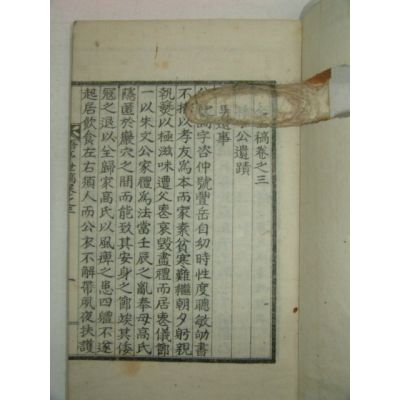 稿卷之三
公遺蹟
遺事
公諱 字咨仲號豐岳自幼時性度聰敏劬書
不掇以孝友爲本而家素貧寒難繼朝夕躬親
執爨以極滋味遭艱哀毁盡禮而居喪儀節
一以朱文公家禮爲法當壬辰之亂奉母高氏
隱匿於巖穴之間而能致其安身之節埃其倭
寇之退以全歸家高氏以風痺之患四軆不遂
起居飮食左右須人而公衣不解帶夙夜扶護
世稿卷之三